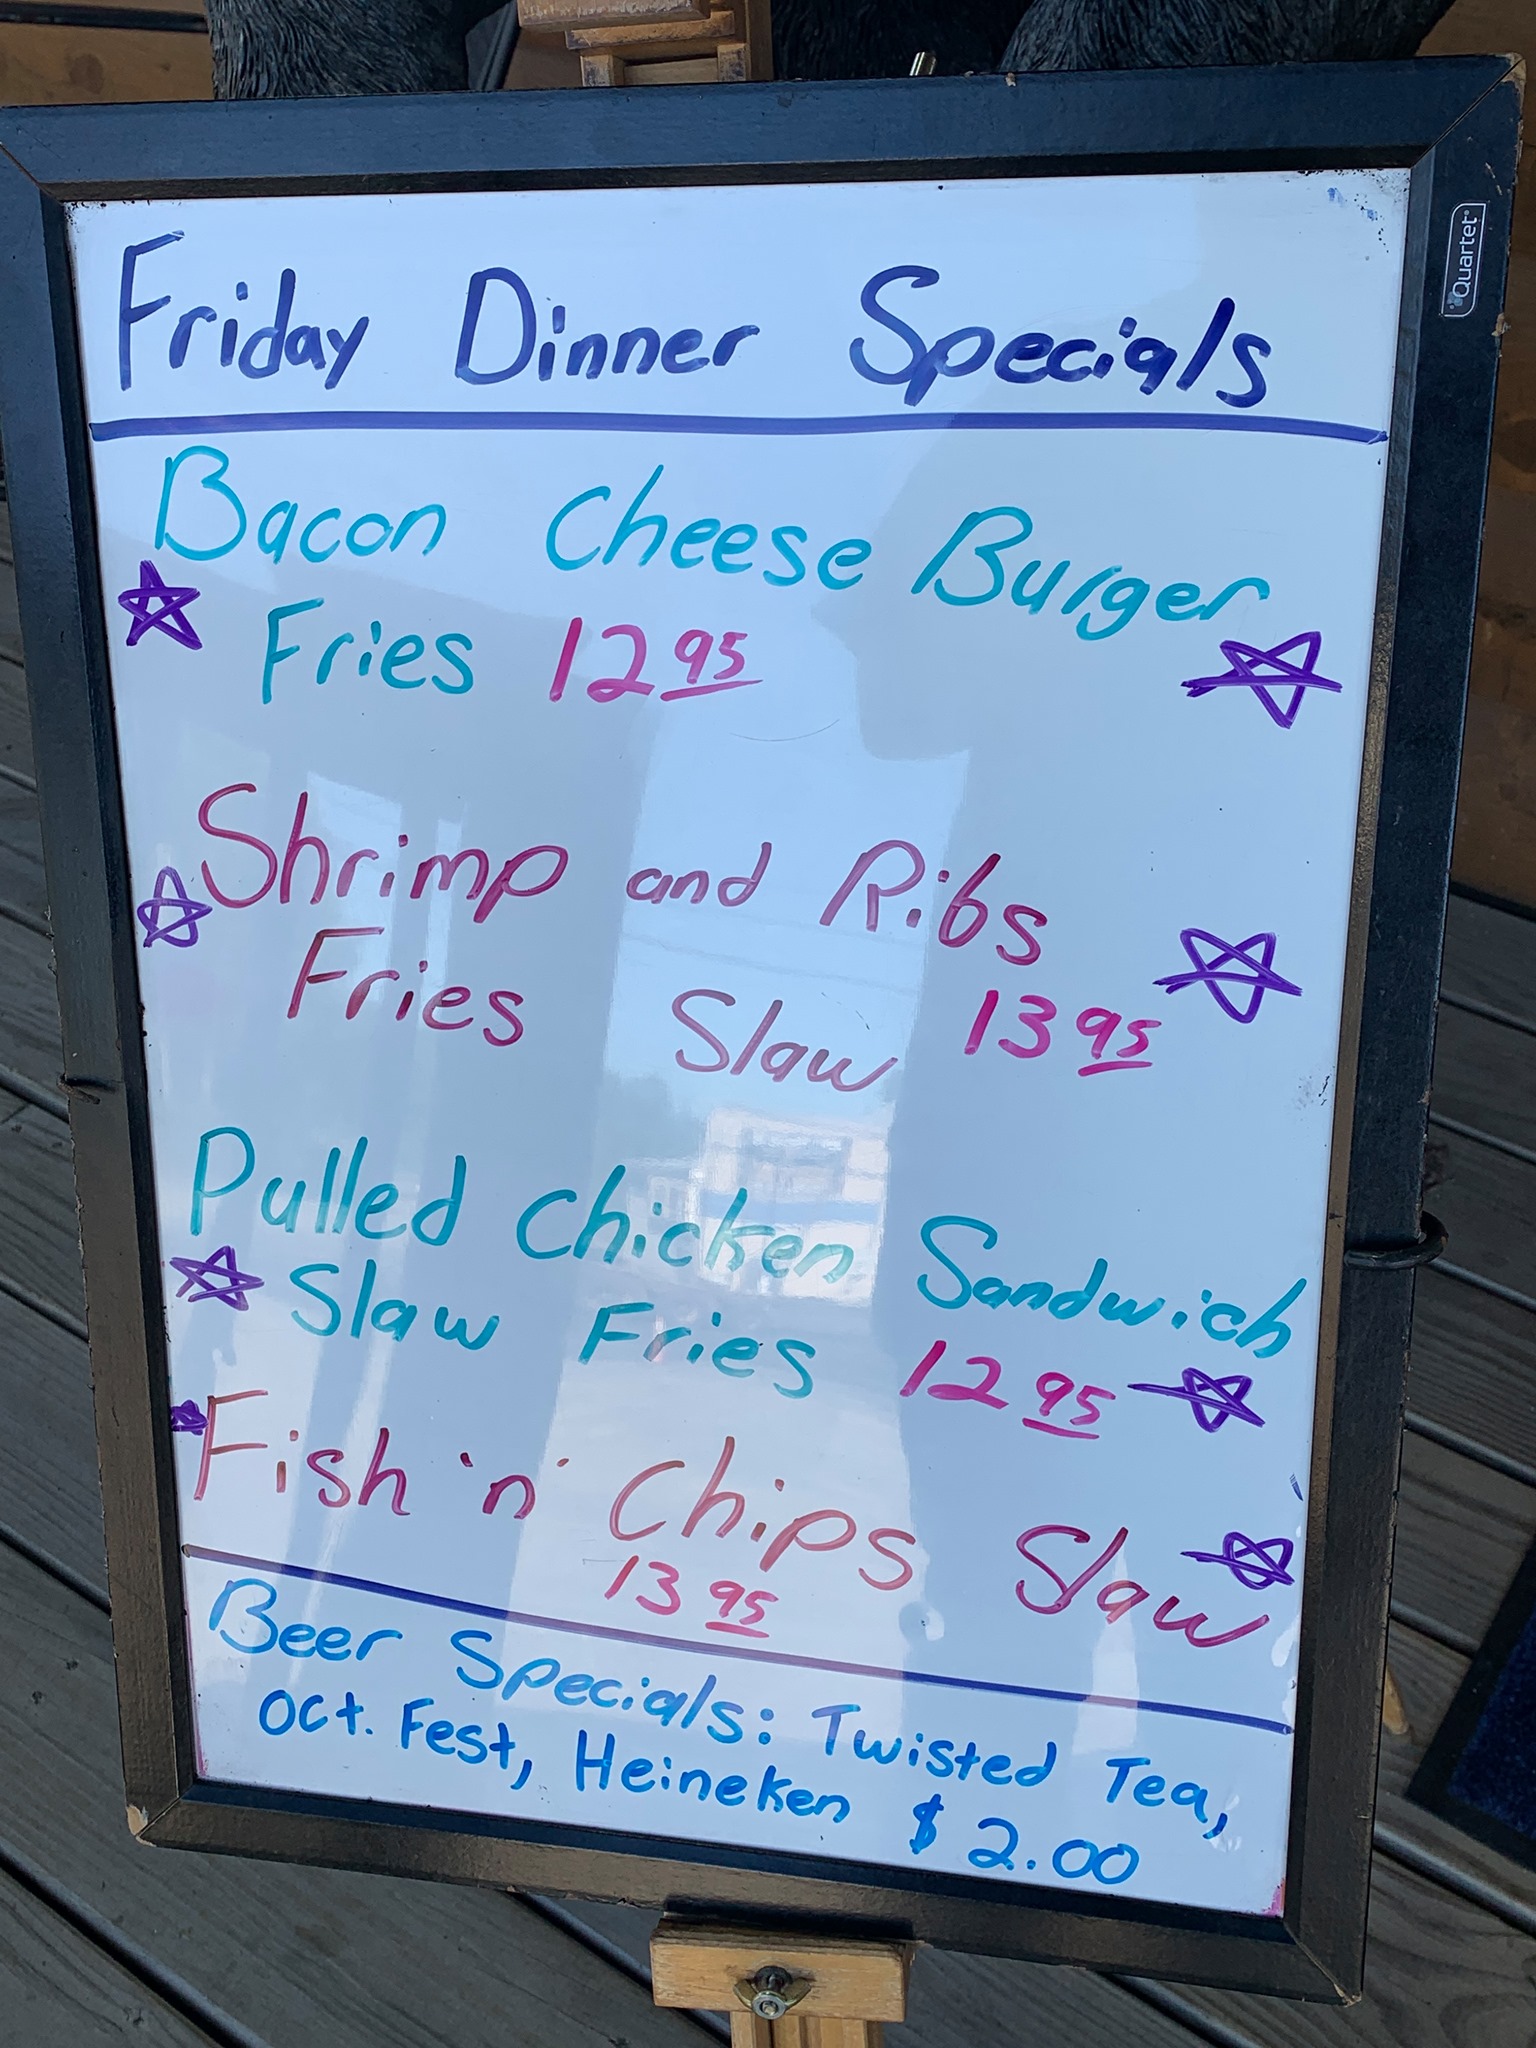 Quartet
Friday Dinner Specials
Bacon Cheese Burger
Fries 12 95
Shrimp and Ribs
Fries Slaw 13 95
Pulled Chicken Sandwich
Slaw Fries 12 95
Fish 'n' Chips Slaw
13 95
Beer Specials: Twisted Tea,
Oct. Fest, Heineken $2.00